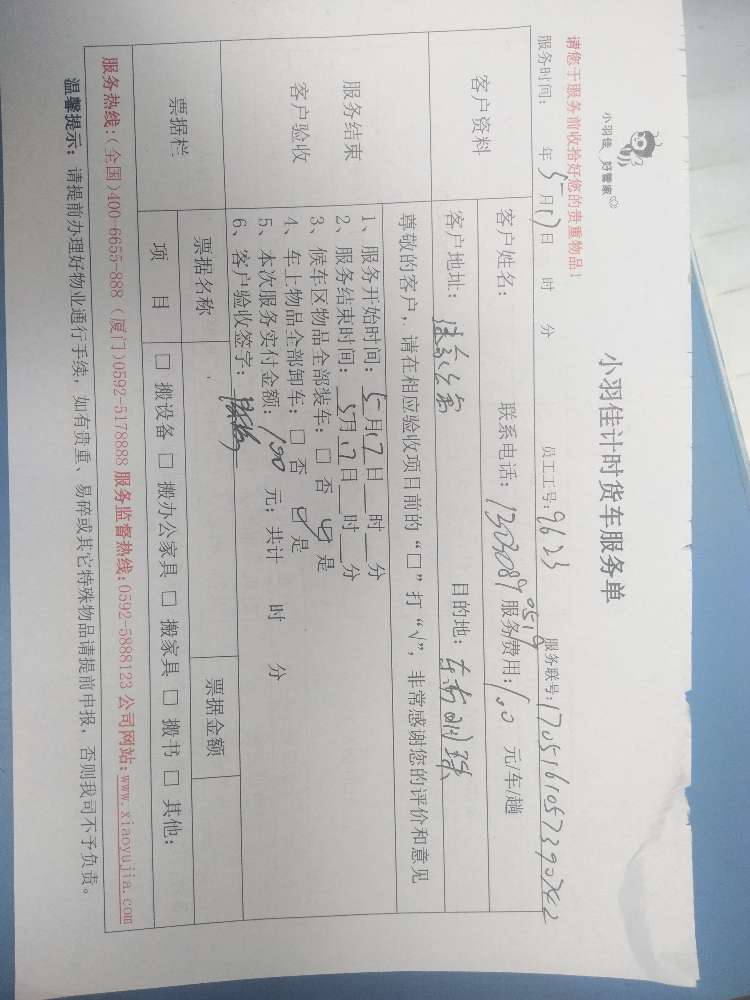 小羽佳 好管家
小羽佳计时货车服务单
请您于服务前收拾好您的贵重物品！
服务时间： 年 5 月 17 日 时 分 员工工号：9623 服务联号：
客户资料
客户姓名： 联系电话： 服务费用： 元/车/趟
客户地址： 目的地：
服务结束
客户验收
尊敬的客户，请在相应验收项目前的“□”打“√”，非常感谢您的评价和意见
1、服务开始时间：5月17日 时 分
2、服务结束时间：5月17日 时 分
3、候车区物品全部装车：□ 否 ☑ 是
4、车上物品全部卸车：□ 否 ☑ 是
5、本次服务实付金额： 元；共计 时 分
6、客户验收签字：
票据栏
票据名称 票据金额
项 目 □ 搬设备 □ 搬办公家具 □ 搬家具 □ 搬书 □ 其他：
服务热线：（全国）400-6655-888（厦门）0592-5178888 服务监督热线：0592-5888123 公司网站：www.xiaoyujia.com
温馨提示：请提前办理好物业通行手续，如有贵重、易碎或其它特殊物品请提前申报，否则我司不予负责。